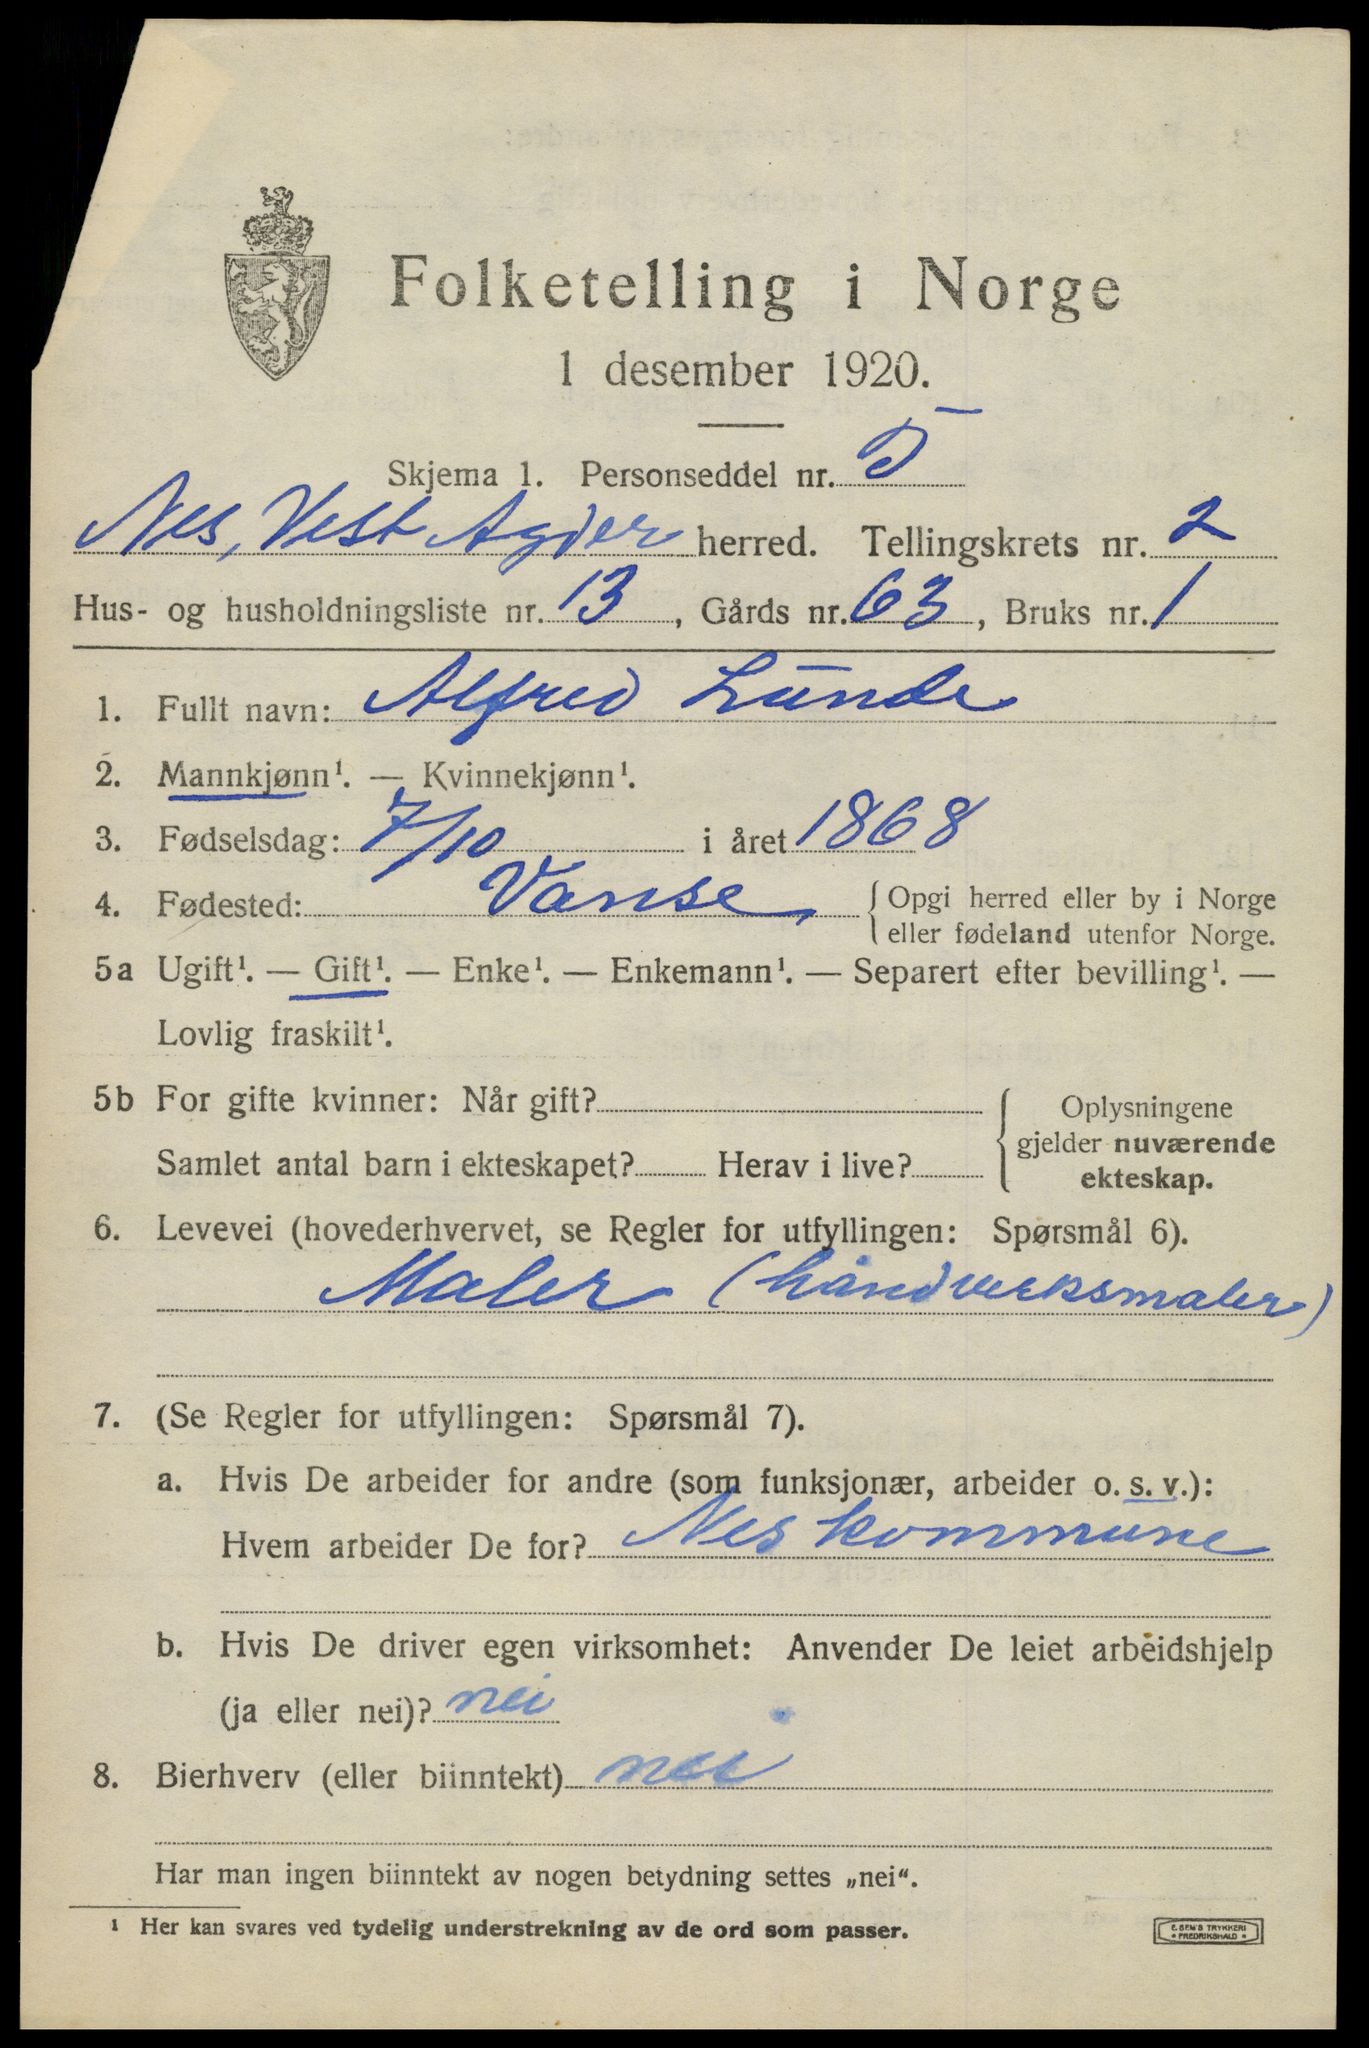 Folketelling i Norge
1 desember 1920.
Skjema 1. Personseddel nr. 5
Nes, Vest Agder herred. Tellingskrets nr. 2
Hus- og husholdningsliste nr. 13, Gårds nr. 63, Bruks nr. 1
1. Fullt navn: Alfred Lunde
2. Mannkjønn¹. — Kvinnekjønn¹.
3. Fødselsdag: 7/10 i året 1868
4. Fødested: Vanse, { Opgi herred eller by i Norge
eller fødeland utenfor Norge.
5a Ugift¹. — Gift¹. — Enke¹. — Enkemann¹. — Separert efter bevilling¹. —
Lovlig fraskilt¹.
5b For gifte kvinner: Når gift? { Oplysningene
gjelder nuværende
Samlet antal barn i ekteskapet? Herav i live?
ekteskap.
6. Levevei (hovederhvervet, se Regler for utfyllingen: Spørsmål 6).
Maler (håndverksmaler)
7. (Se Regler for utfyllingen: Spørsmål 7).
a. Hvis De arbeider for andre (som funksjonær, arbeider o. s. v.):
Hvem arbeider De for? Nes kommune
b. Hvis De driver egen virksomhet: Anvender De leiet arbeidshjelp
(ja eller nei)? nei
8. Bierhverv (eller biinntekt) nei
Har man ingen biinntekt av nogen betydning settes „nei“.
¹ Her kan svares ved tydelig understrekning av de ord som passer.
E. SEM'S TRYKKERI
• FREDRIKSHALD •